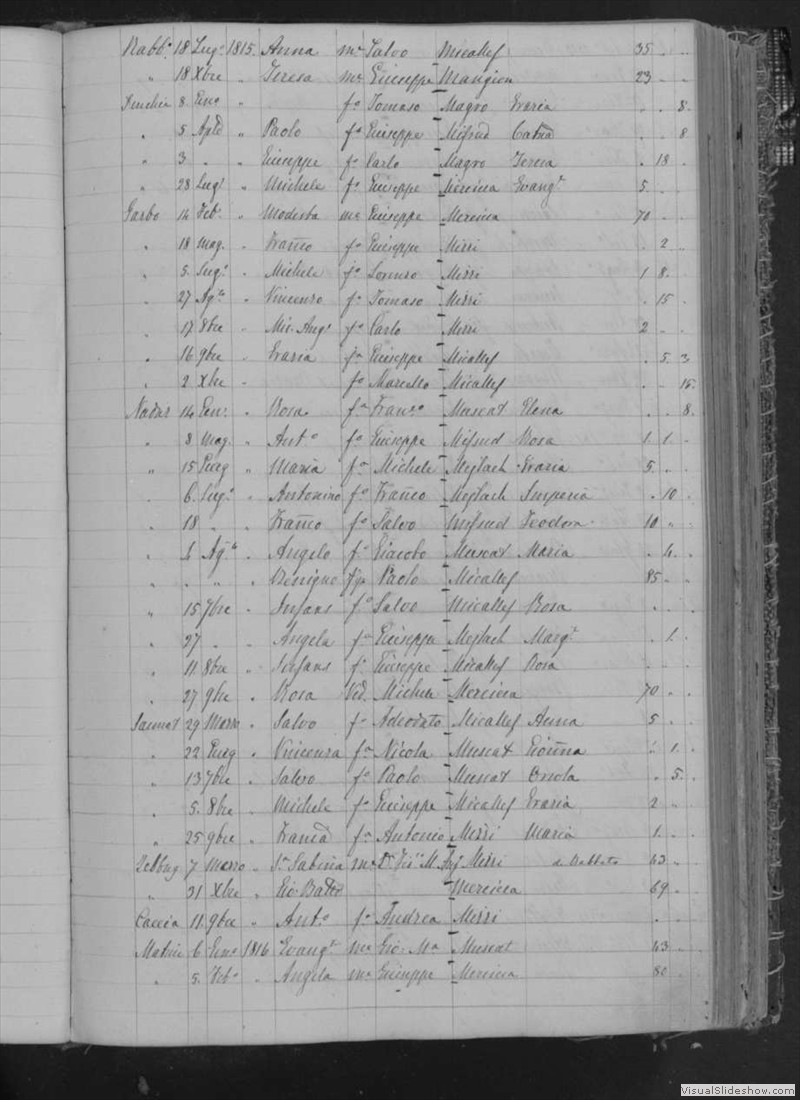 Rabbo 18 Lugo 1815 Anna me Salvo Micallef 35
" 18 Xbre " Teresa me Giuseppe Mangion 23
8 Geno " fo Tomaso Magro Grazia 8
" 5 Agto " Paolo fo Giuseppe Mifsud Catna 8
" 3 " " Giuseppe fo Carlo Magro Teresa 18
" 28 Lugo " Michele fo Giuseppe Mercieca Evangta 5
Garbo 14 Febo " Modesta me Giuseppe Mercieca 70
" 18 Mag. " Franco fo Giuseppe Mizzi 2
" 5 Lugo " Michele fo Lorenzo Mizzi 1 8
" 27 Agto " Vincenzo fo Tomaso Mizzi 15
" 17 8bre " Mic. Ango fo Carlo Mizzi 2
" 16 9bre " Grazia fa Giuseppe Micallef 5 3
" 2 Xbre " fo Marcello Micallef 15
Nadur 14 Geno " Rosa fa Franco Muscat Elena 8
" 8 Mag. " Anto fo Giuseppe Mifsud Rosa 1 1
" 15 Giug " Maria fa Michele Mejlach Grazia 5
" 6 Lugo " Antonino fo Franco Mejlach Imperia 10
" 18 " " Franco fo Salvo Mifsud Teodora 10
" 4 Ago " Angelo fo Giacobo Muscat Maria 4
" " " " Benigno Paolo Micallef 85
" 15 7bre " Infans fo Salvo Micallef Rosa
" 27 " " Angela fa Giuseppe Mejlach Margta 1
" 11 8bre " Infans fo Giuseppe Micallef Rosa
" 27 9bre " Rosa Vid. Michele Mercieca 70
Sannat 29 Marzo " Salvo fo Adeodato Micallef Anna 5
" 22 Giug " Vincenza fa Nicola Muscat Gioanna 1
" 13 7bre " Salvo fo Paolo Muscat Orsola 5
" 5 8bre " Michele fo Giuseppe Micallef Grazia 2
" 25 9bre " Franca fa Antonio Mizzi Maria 1
Zebbug 7 Marzo " Sa Sabina me Mizzi a Rabbato 43
" 31 Xbre " Gio Batta Mercieca 69
Caccia 11 9bre " Anto fo Andrea Mizzi
Matrice 6 Geno 1816 Evangta me Gio. Ma Muscat 43
" 5 Febo " Angela me Giuseppe Mercieca 80
VisualSlideshow.com